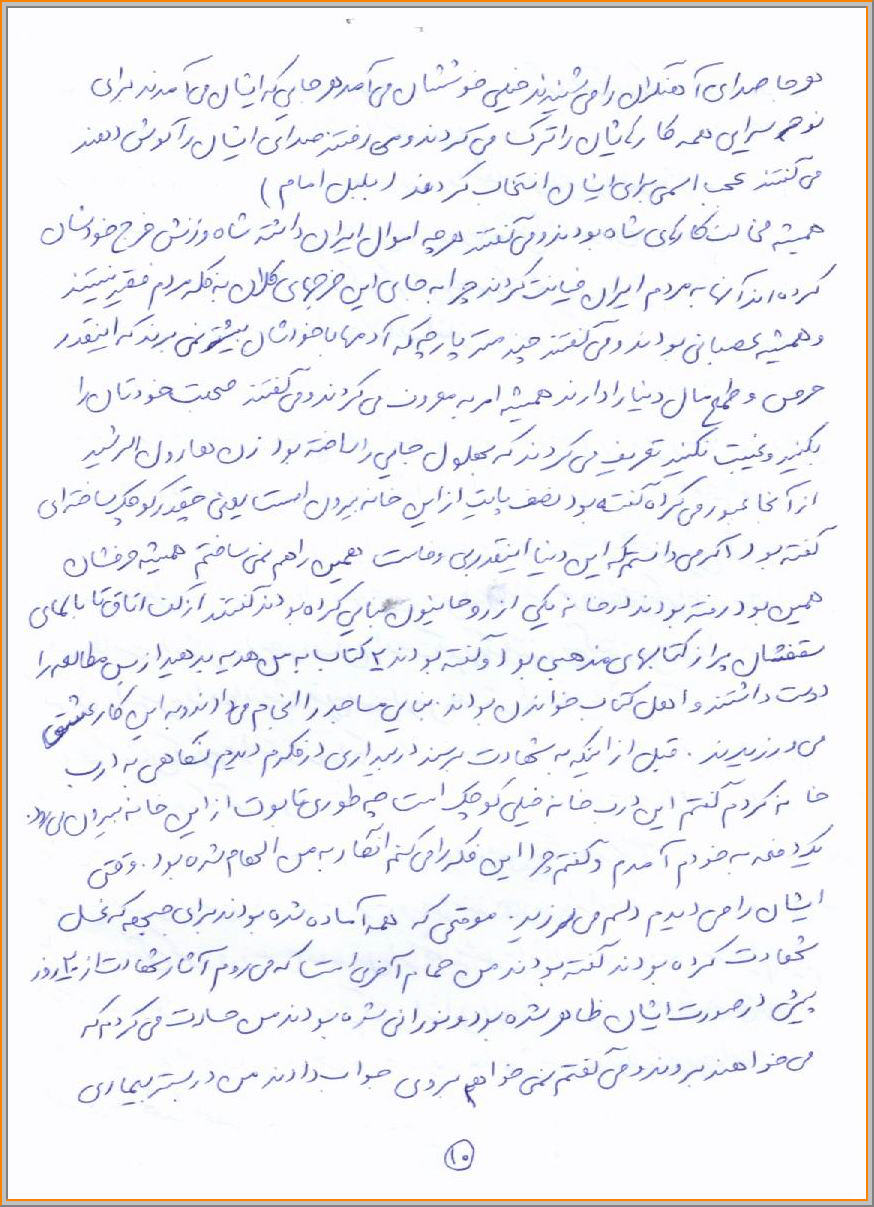 هر جا صدای آهنگران را می شنیدند خیلی خوششان می آمد هر جایی که ایشان می آمدند برای
نوحه سرایی همه کارهایشان را ترک می کردند و می رفتند صدای ایشان را گوش دهند
می گفتند عجب اسمی برای ایشان انتخاب کردند ( بلبل امام )
همیشه مخالف کارهای شاه بودند و می گفتند هر چه اموال ایران داشته شاه و زنش خرج خودشان
کرده اند آنها به مردم ایران خیانت کردند چرا به جای این خرجهای کلان به فکر مردم فقیر نیستند
و همیشه عصبانی بودند و می گفتند چند متر پارچه که آدمها با خودشان بیشتر نمی برند که اینقدر
حرص و طمع مال دنیا را دارند همیشه امر به معروف می کردند و می گفتند صحبت خودتان را
بکنید و غیبت نکنید تعریف می کردند که بهلول جایی را ساخته بود زن هارون الرشید
از آنجا عبور می کرد گفته بود نصف پایت از این خانه بیرون است یعنی چقدر کوچک ساخته ای
گفته بود اگر می دانستم که این دنیا اینقدر بی وفاست همین را هم نمی ساختم همیشه حرفشان
همین بود رفته بودند در خانه یکی از روحانیون بنایی کرده بودند گفتند از کف اتاق تا بالای
سقفشان پر از کتابهای مذهبی بود و گفته بودند ۲ کتاب به من هدیه بدهید از بس مطالعه را
دوست داشتند و اهل کتاب خواندن بودند . بنایی مساجد را انجام می دادند و به این کار عشق
می ورزیدند . قبل از اینکه به شهادت برسند در بیداری در فکرم دیدم نگاهی به درب
خانه کردم گفتم این درب خانه خیلی کوچک است چه طوری تابوت از این خانه بیرون می رود.
یکدفعه به خودم آمدم و گفتم چرا این فکر را می کنم انگار به من الهام شده بود . وقتی
ایشان را می دیدم دلم می لرزید . موقعی که همه آماده شده بودند برای جبهه که غسل
شهادت کرده بودند گفته بودند من حمام آخری است که می روم آثار شهادت از ۲۰ روز
پیش در صورت ایشان ظاهر شده بود و نورانی شده بودند من حسادت می کردم که
می خواهند بروند و می گفتم نمی خواهم بروی جواب دادند من در بستر بیماری
۱۰